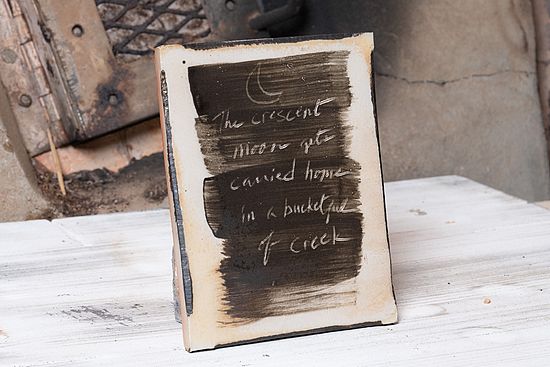 The crescent
moon gets
carried home
in a bucketful
of creek